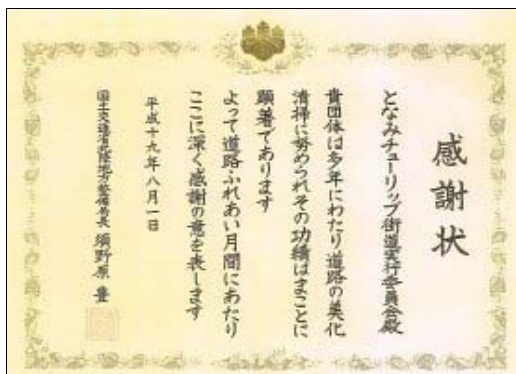 感謝状
となみチューリップ街道実行委員会殿
貴団体は多年にわたり道路の美化
清掃に努められその功績はまことに
顕著であります
よって道路ふれあい月間にあたり
ここに深く感謝の意を表します
平成十九年八月一日
国土交通省北陸地方整備局長 須野原 豊